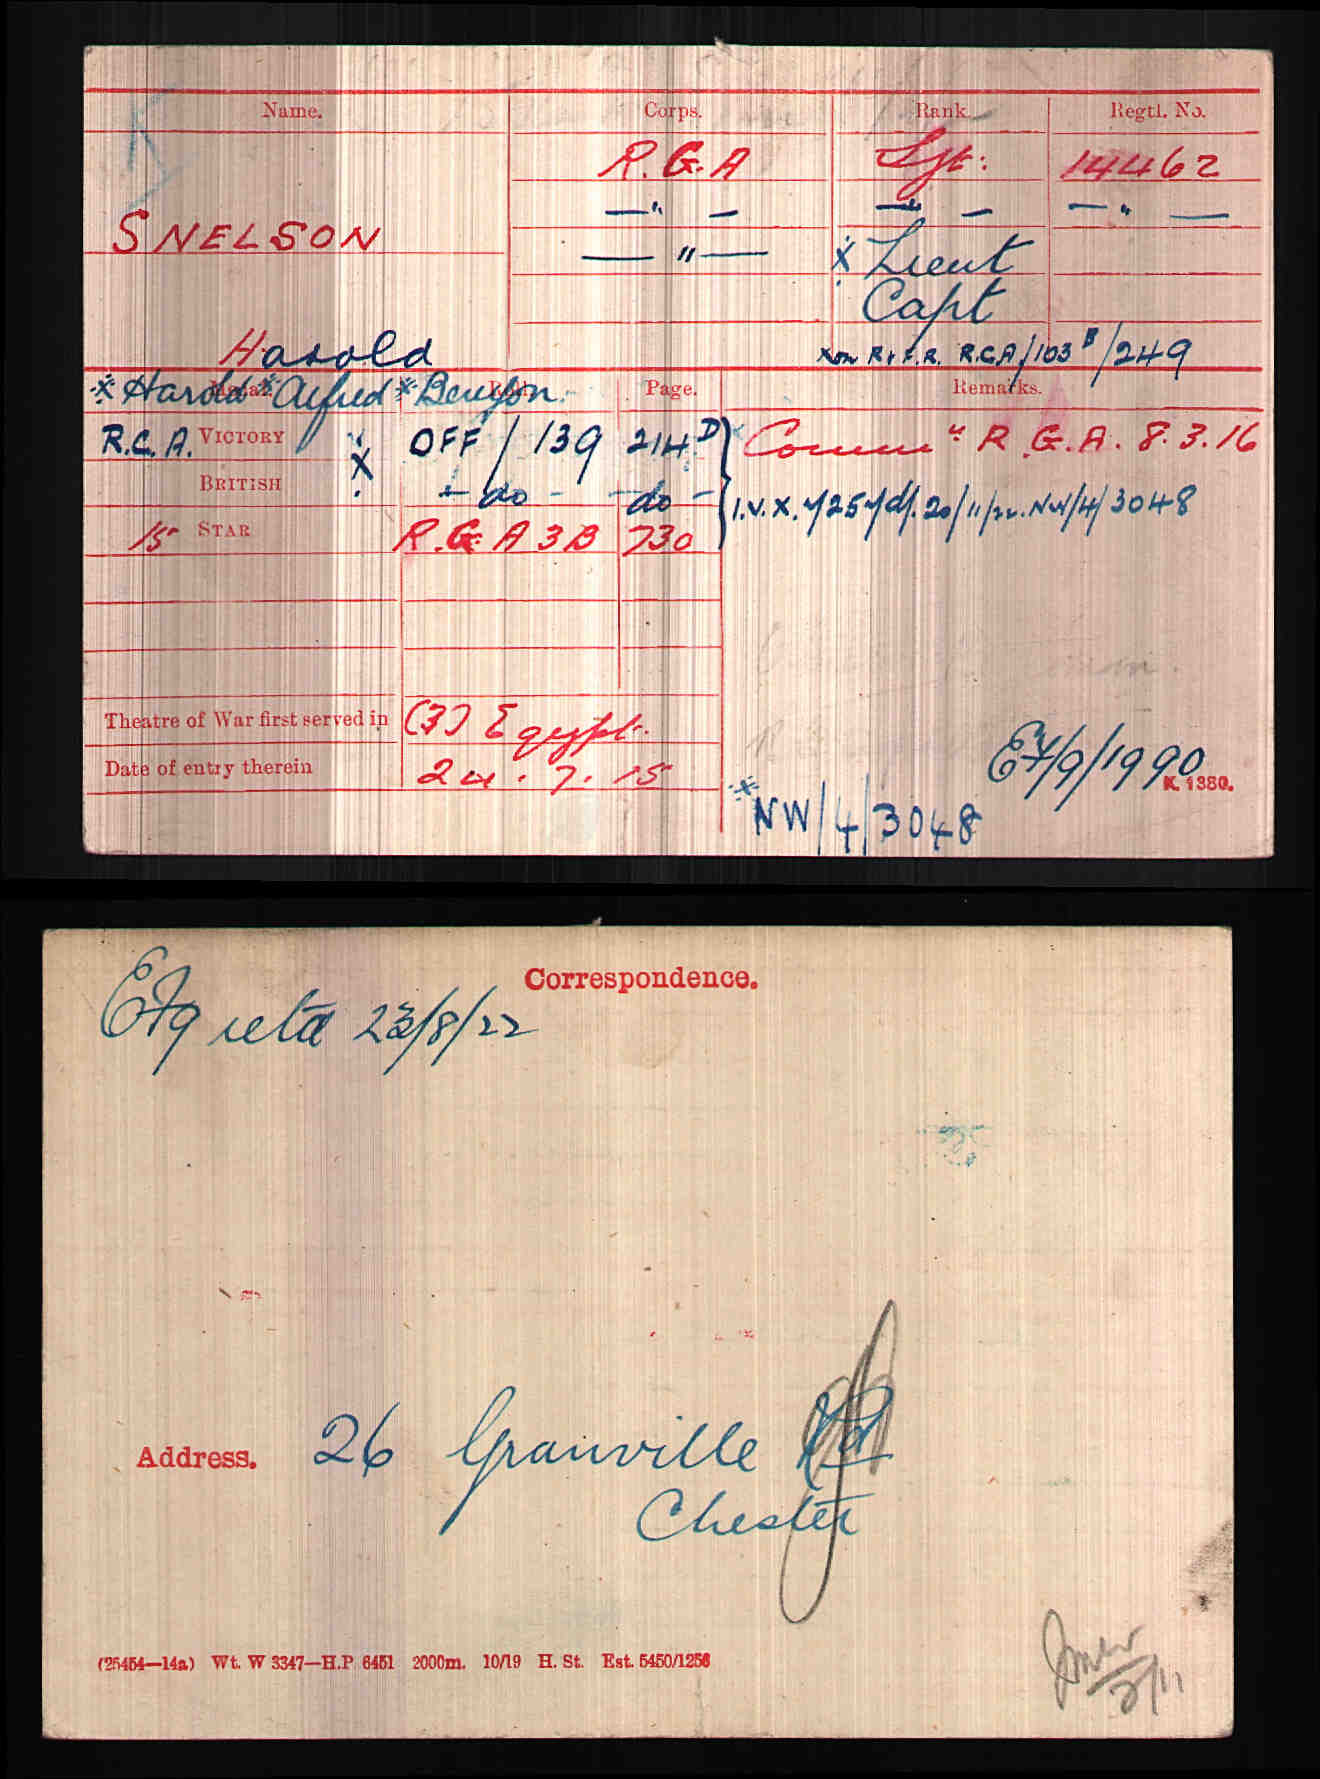 Name. Corps. Rank. Regtl. No.
R.G.A Sgt. 14462
— " — — " — — " —
SNELSON
— " — x Lieut
Capt
Harold
x on R & F.R. R.G.A/103 B/249
* Harold * Alfred * Page. Remarks.
R.G.A. VICTORY X OFF/139 214 D Commn. R.G.A. 8.3.16
BRITISH - do - - do - I.V.X. /2 20/11/22. NW/4/3048
15 STAR R.G.A 3B 730
Theatre of War first served in (3) Egypt.
Date of entry therein 24.7.15
EF/9/1990
K. 1380.
* NW/4/3048
Correspondence.
EF9 retd 23/8/22
Address. 26 Granville Rd
Chester
(25454—14a) Wt. W 3347—H.P. 6451 2000m. 10/19 H. St. Est. 5450/1256
2/11